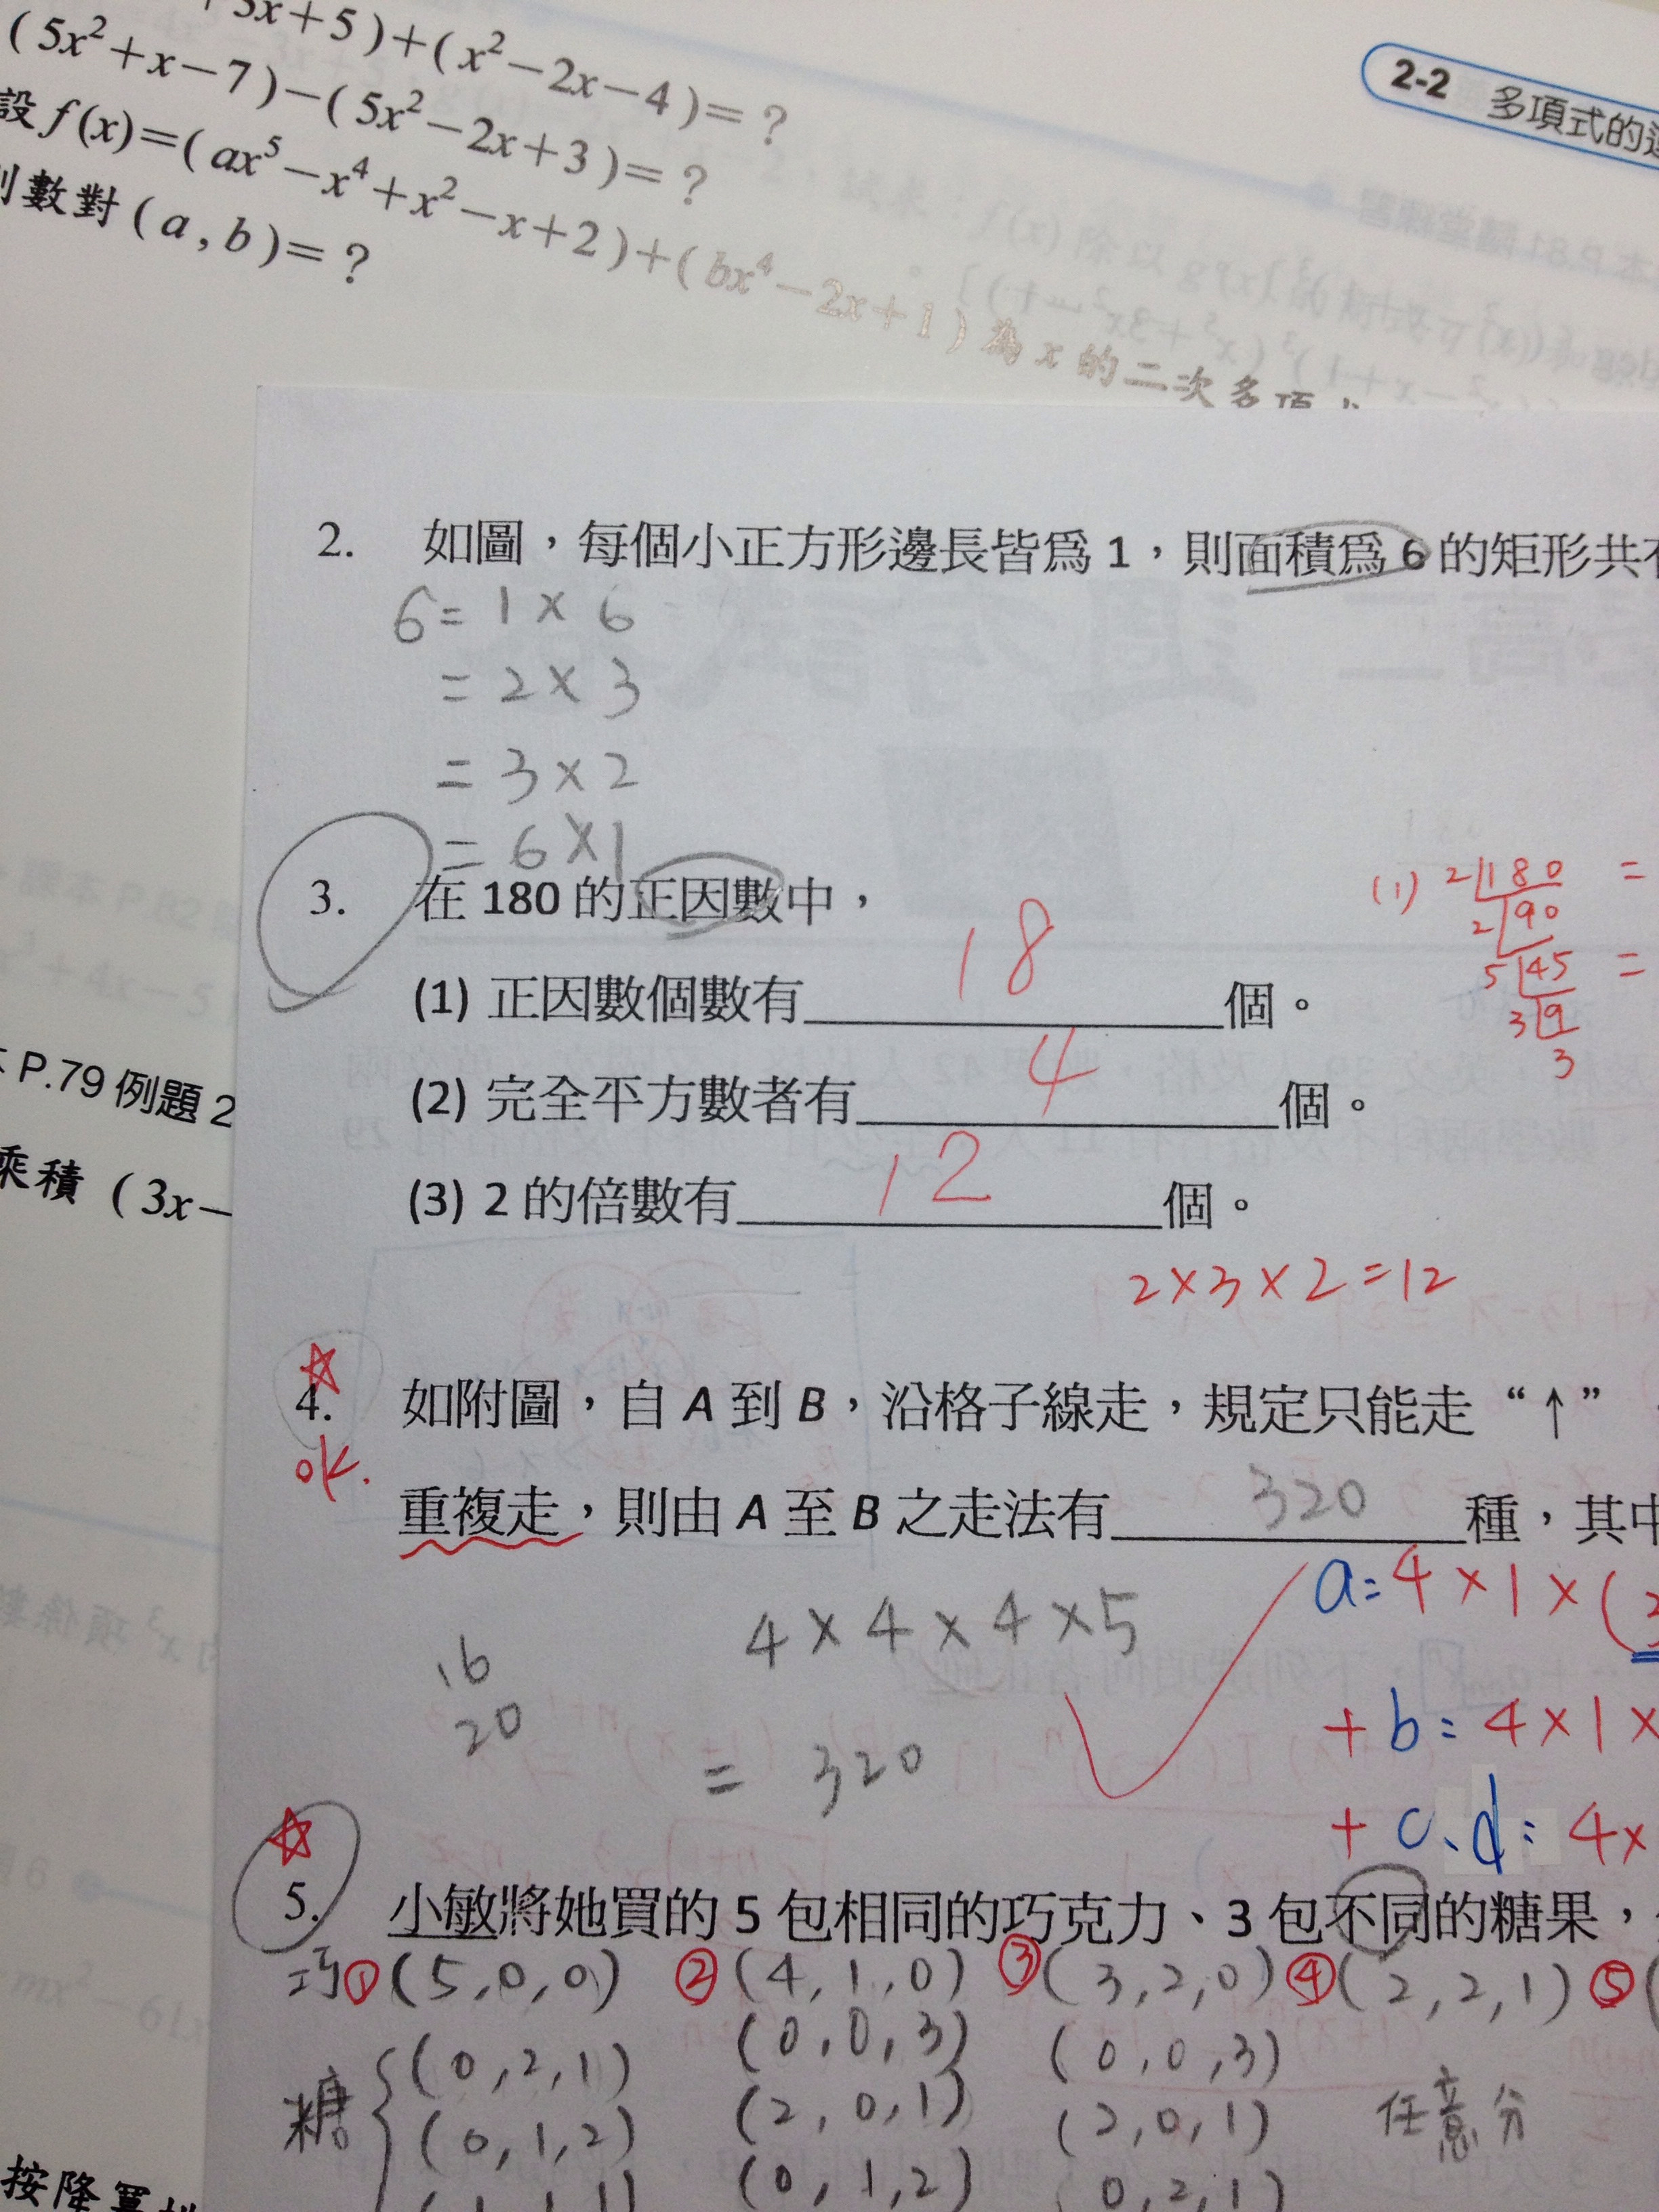 3x+5)+(x²-2x-4)=?
(5x²+x-7)-(5x²-2x+3)=?
設f(x)=(ax⁵-x⁴+x²-x+2)+(bx⁴-2x+1)為x的二次多項
數對(a,b)=?
2-2 多項式的
2. 如圖，每個小正方形邊長皆為1，則面積為6的矩形共
6=1×6
=2×3
=3×2
=6×1
3. 在180的正因數中，
(1) 正因數個數有 18 個。
(2) 完全平方數者有 4 個。
(3) 2的倍數有 12 個。
(1) 2 180 =
2 90
5 45 =
3 9
3
2×3×2=12
P.79 例題2
乘積 (3x-
☆
4. 如附圖，自A到B，沿格子線走，規定只能走“↑”
ok.
重複走，則由A至B之走法有 320 種，其中
4×4×4×5
16
20
=320
a=4×1×(
+b=4×1×
+c、d=4×
☆
5. 小敏將她買的5包相同的巧克力、3包不同的糖果，
巧①(5,0,0) ②(4,1,0) ③(3,2,0) ④(2,2,1) ⑤(
糖{(0,2,1) (0,0,3) (0,0,3)
(0,1,2) (2,0,1) (2,0,1) 任意分
(0,1,2) 0,2,1)
按降冪